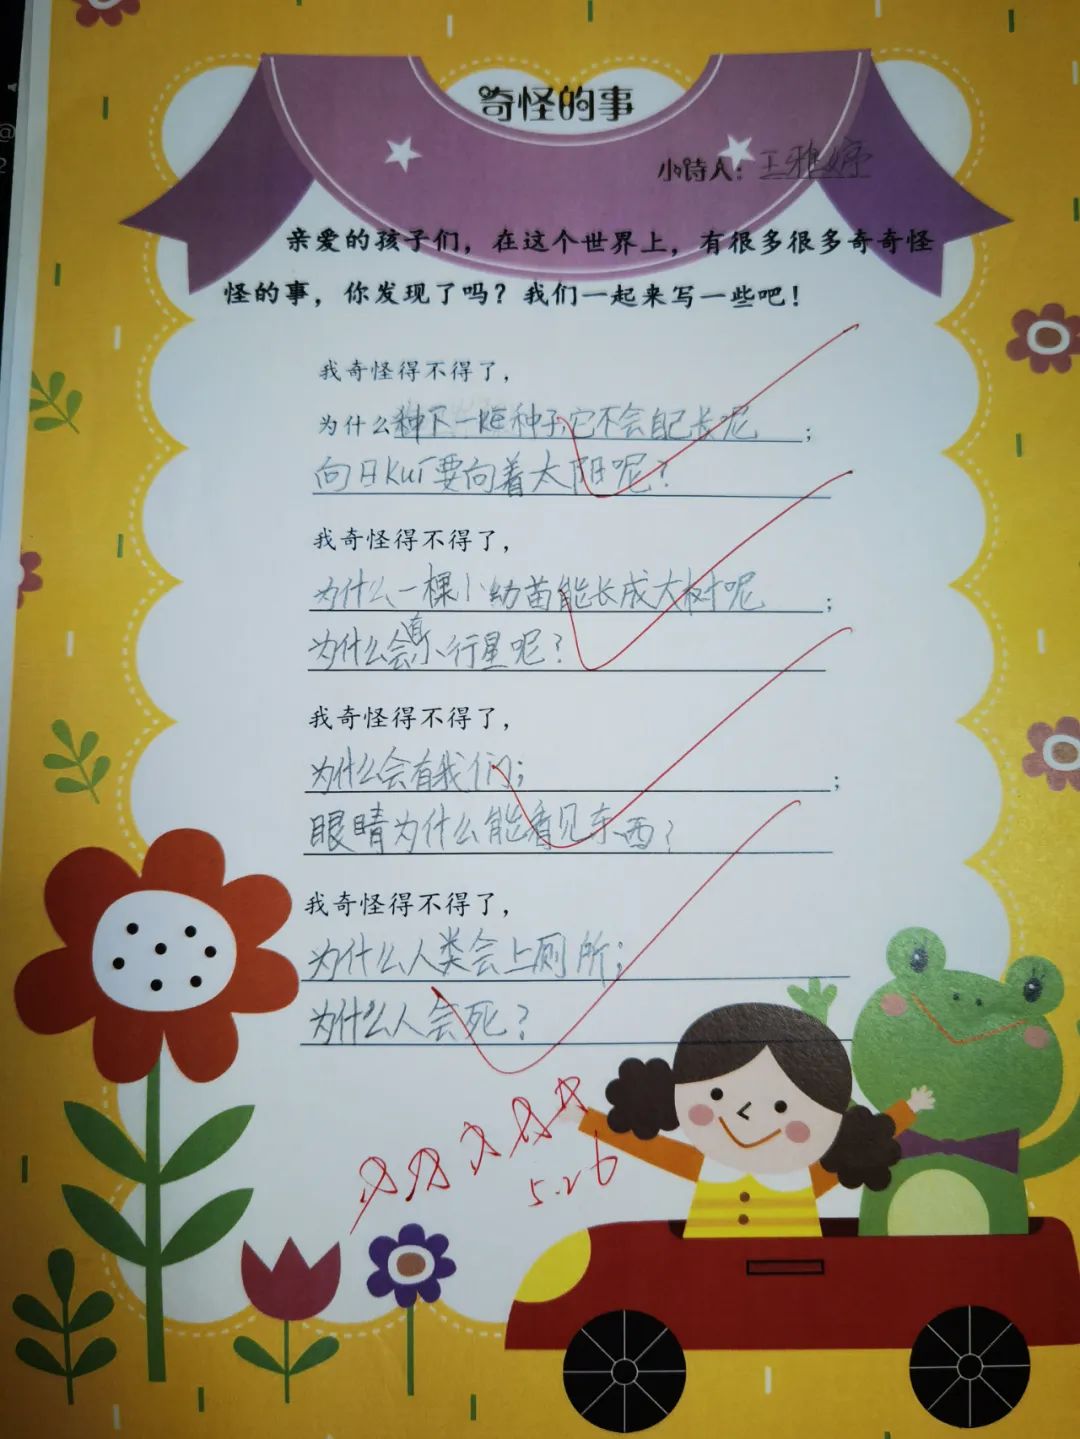 奇怪的事
小诗人：王雅婷
亲爱的孩子们，在这个世界上，有很多很多奇奇怪
怪的事，你发现了吗？我们一起来写一些吧！
我奇怪得不得了，
为什么种下一颗种子，它不会自己长呢；
向日kuí要向着太阳呢？
我奇怪得不得了，
为什么一棵小幼苗能长成大树呢；
为什么会有小行星呢？
我奇怪得不得了，
为什么会有我们；；
眼睛为什么能看见东西？
我奇怪得不得了，
为什么人类会上厕所；
为什么人会死？
5.26